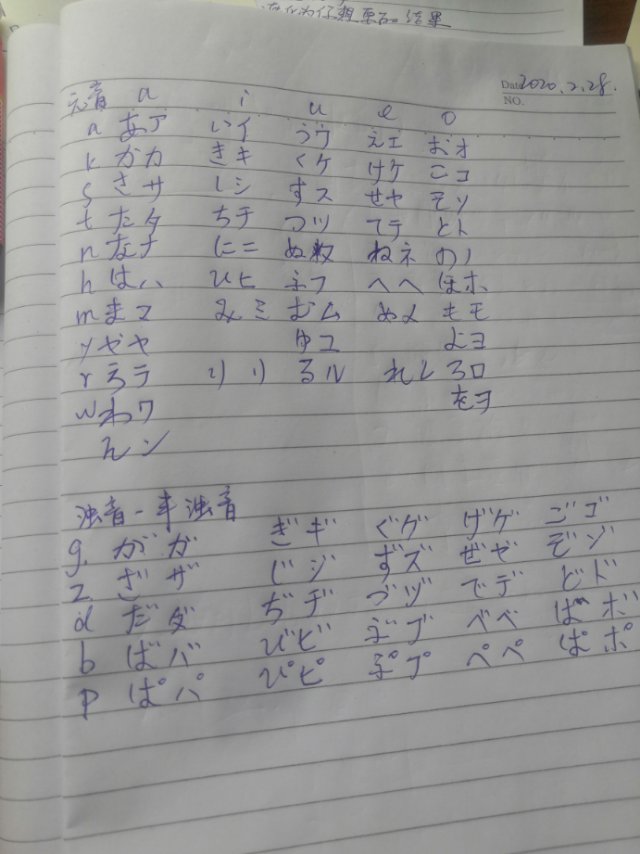 结果
Date 2020.2.28.
NO.
元音 a i u e o
a あア いイ うウ えエ おオ
k かカ きキ くケ けケ こコ
s さサ しシ すス せヤ そソ
t たタ ちチ つツ てテ とト
n なナ にニ ぬヌ ねネ のノ
h はハ ひヒ ふフ へヘ ほホ
m まマ みミ むム めメ もモ
y やヤ ゆユ よヨ
r らラ りリ るル れレ ろロ
w わワ をヲ
んン
浊音-半浊音
g. がガ ぎギ ぐゲ げゲ ごゴ
z ざザ じジ ずズ ぜゼ ぞゾ
d だダ ぢヂ づヅ でデ どド
b ばバ びビ ぶブ べベ ぼボ
p ぱパ ぴピ ぷプ ぺペ ぱポ